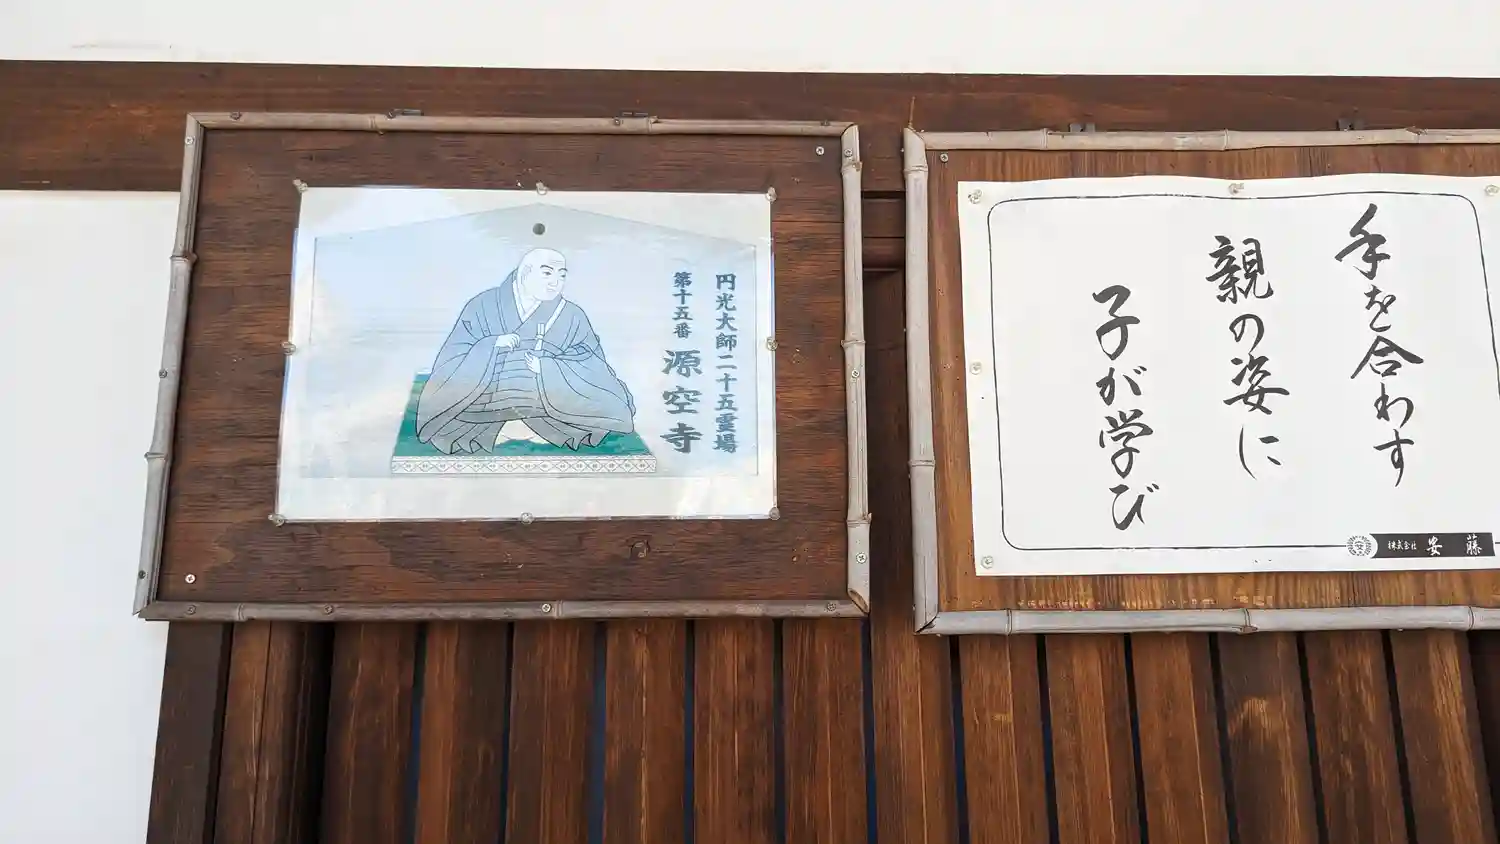 円光大師二十五霊場
第十五番 源空寺
手を合わす
親の姿に
子が学び
株式会社 安藤